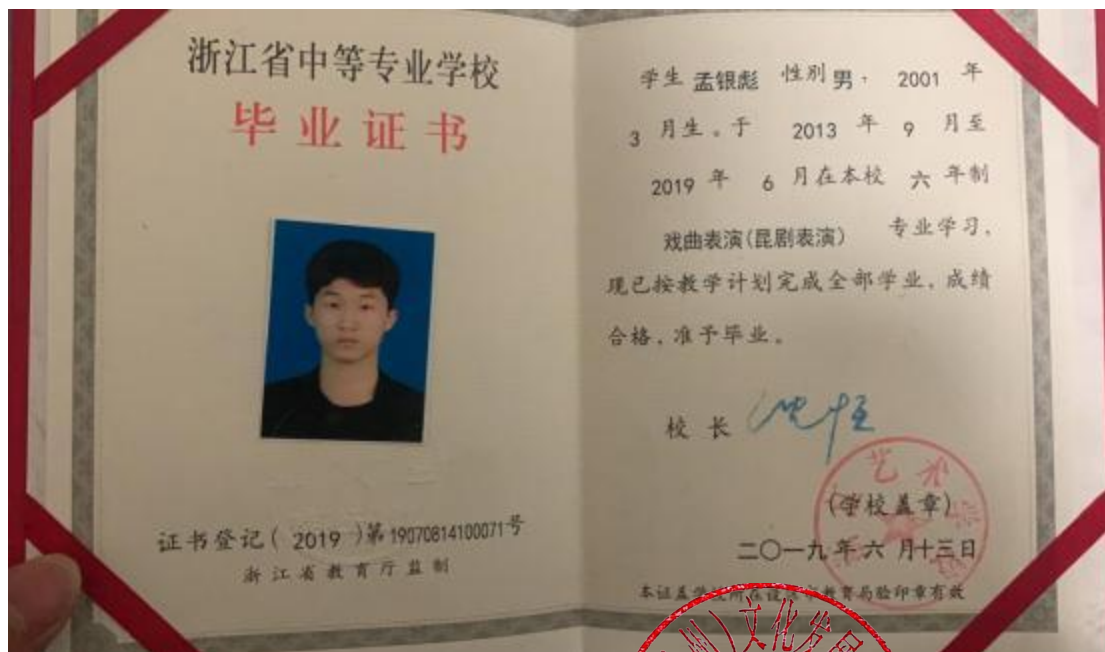 浙江省中等专业学校
毕业证书
证书登记(2019)第19070814100071号
浙江省教育厅监制
学生 孟银彪 性别 男， 2001 年
3 月生。于 2013 年 9 月至
2019 年 6 月在本校 六 年制
戏曲表演(昆剧表演) 专业学习，
现已按教学计划完成全部学业，成绩
合格，准予毕业。
校长
艺术
(学校盖章)
二〇一九年六月十三日
本证盖学校所在教育局验印章有效
文化发展